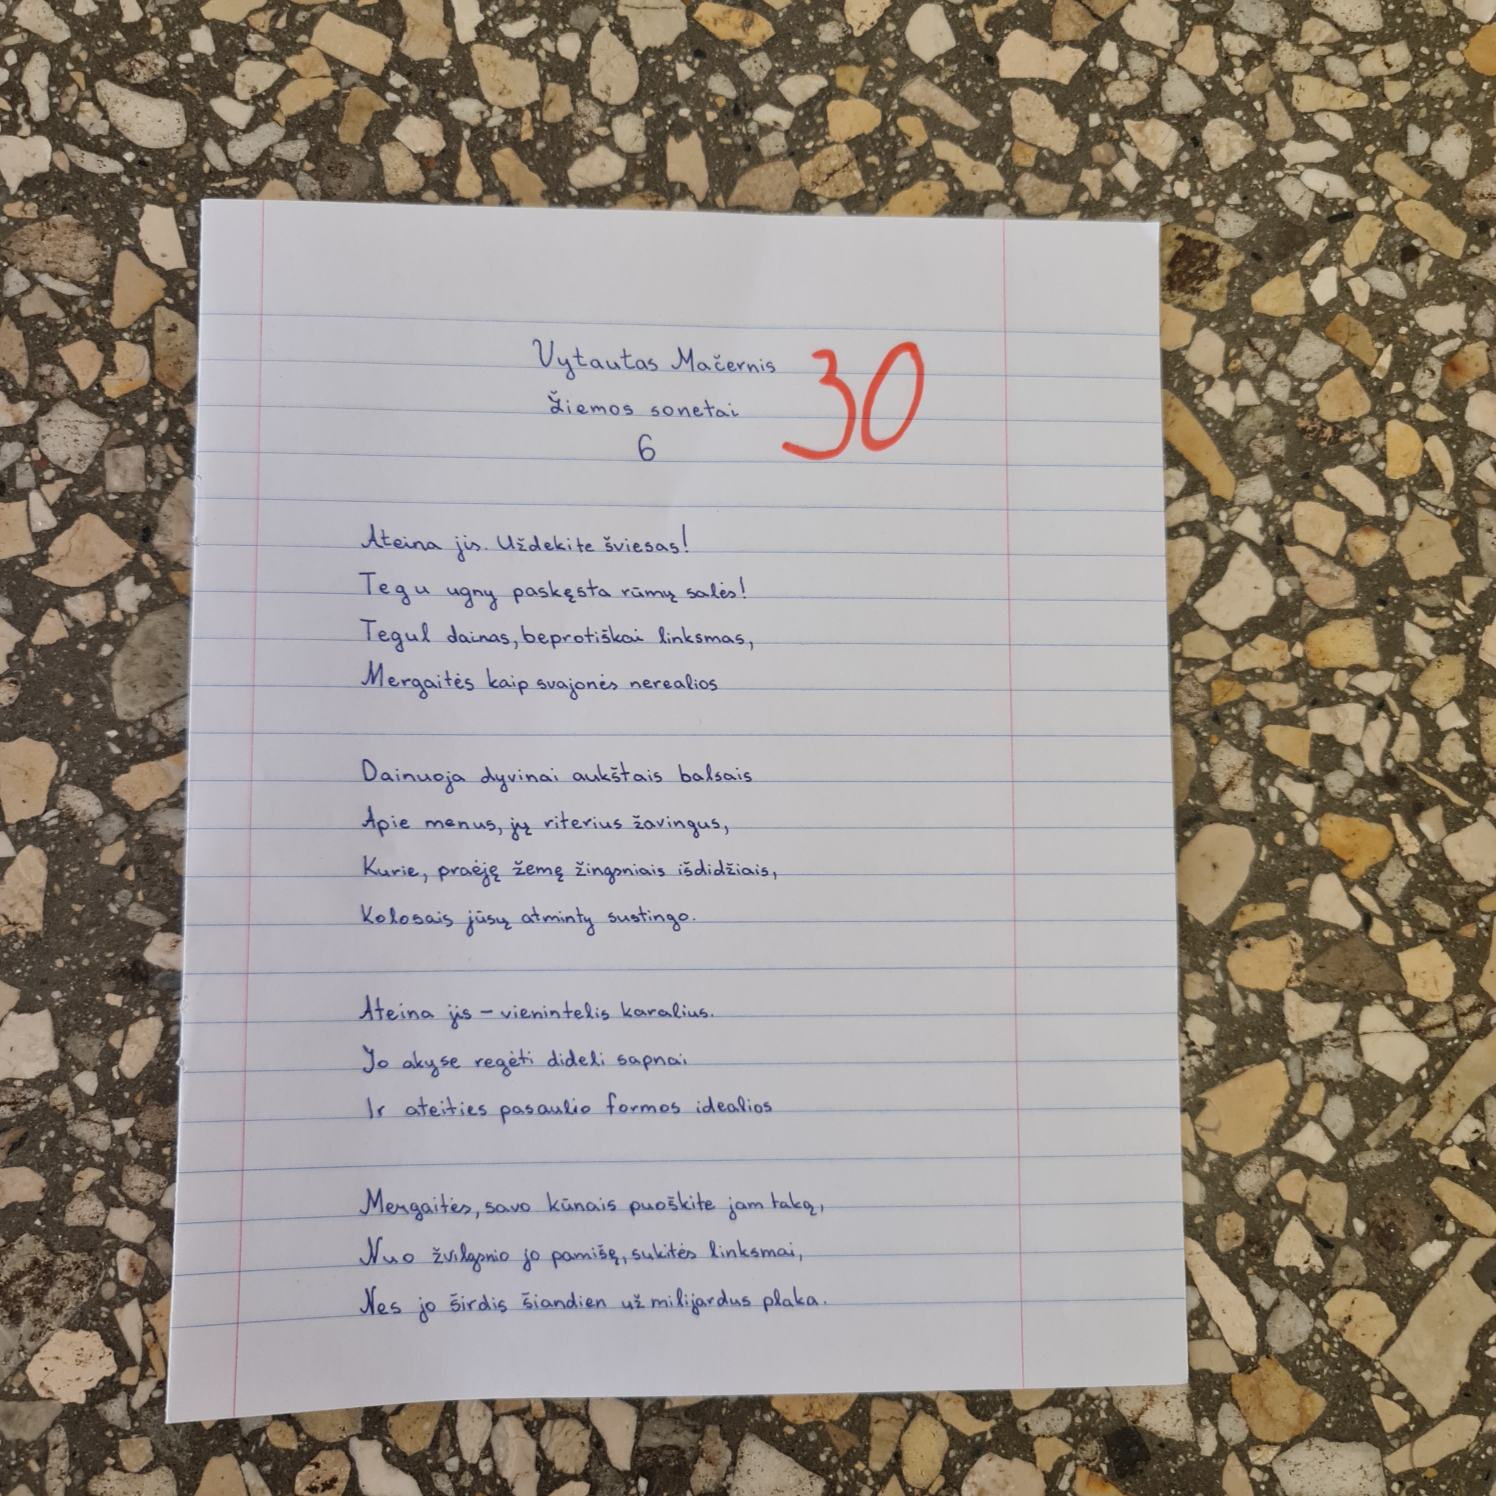 Vytautas Mačernis
30
Žiemos sonetai
6
Ateina jis. Uždekite šviesas!
Tegu ugny paskęsta rūmų salės!
Tegul dainas, beprotiškai linksmas,
Mergaitės kaip svajonės nerealios
Dainuoja dyvinai aukštais balsais
Apie menus, jų riterius žavingus,
Kurie, praėję žemę žingsniais išdidžiais,
Kolosais jūsų atminty sustingo.
Ateina jis – vienintelis karalius.
Jo akyse regėti dideli sapnai
Ir ateities pasaulio formos idealios
Mergaitės, savo kūnais puoškite jam taką,
Nuo žvilgsnio jo pamišę, sukitės linksmai,
Nes jo širdis šiandien už milijardus plaka.